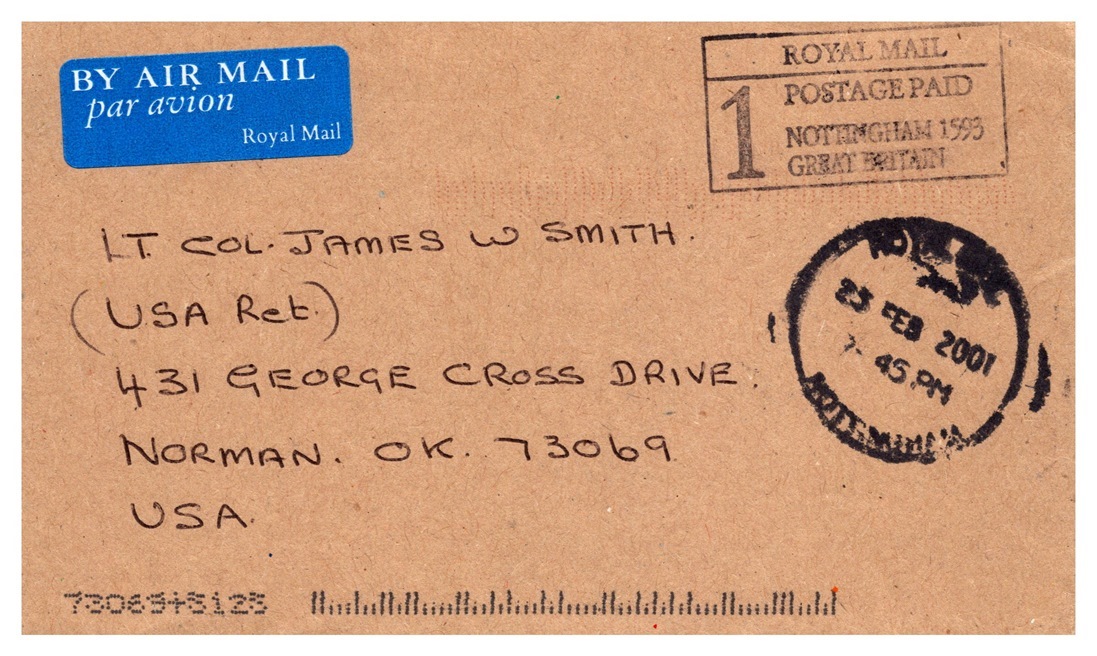 BY AIR MAIL
par avion
Royal Mail
ROYAL MAIL
1
POSTAGE PAID
NOTTINGHAM 1593
GREAT BRITAIN
LT. COL. JAMES W SMITH.
(USA Ret.)
431 GEORGE CROSS DRIVE.
NORMAN. OK. 73069
USA.
23 FEB 2001
45 PM
73069+5125